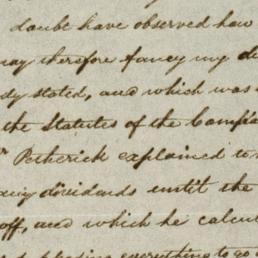 doubt have observed how
may therefore fancy my di
dy stated, and which was
the Statutes of the Compa
Petherick explained to
dividends until the
off, and which he calcu
everything to go